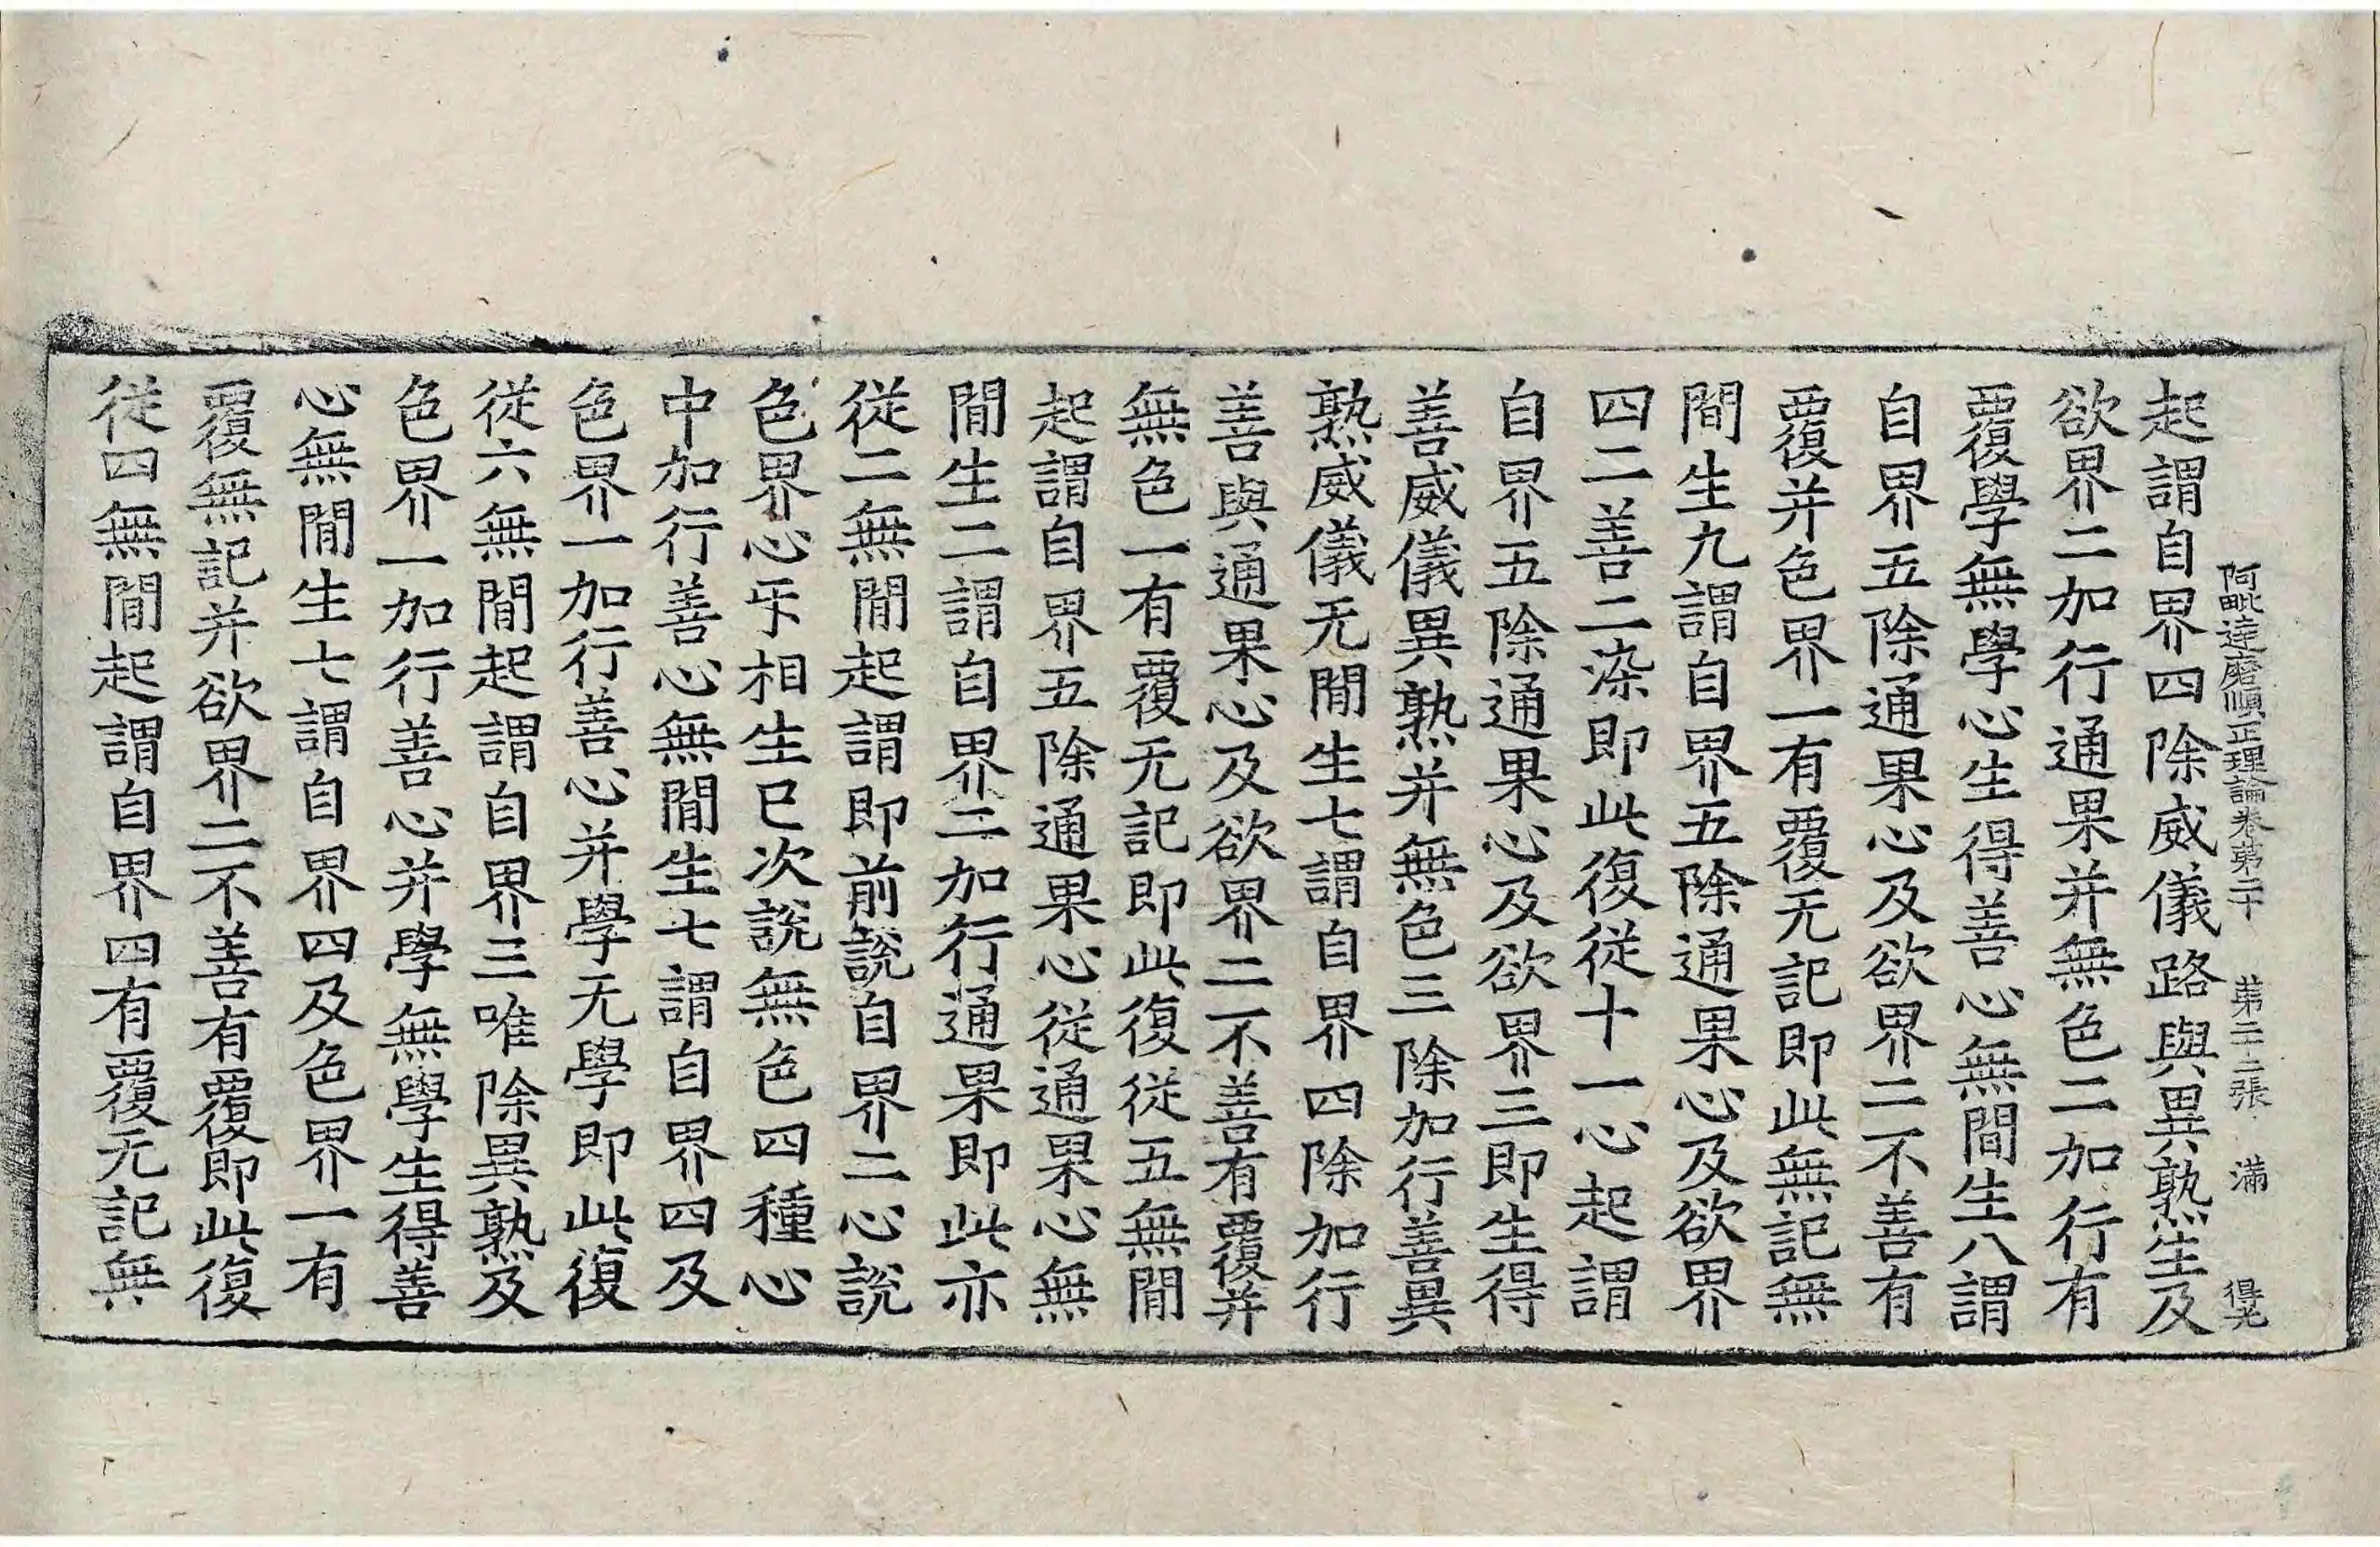 阿毗達磨順正理論卷苐二十　苐二十二張　滿　得光
起謂自界四除威儀路與異熟生及
欲界二加行通果并無色二加行有
覆學無學心生得善心無間生八謂
自界五除通果心及欲界二不善有
覆并色界一有覆无記即此無記無
間生九謂自界五除通果心及欲界
四二善二染即此復從十一心起謂
自界五除通果心及欲界三即生得
善威儀異熟并無色三除加行善異
熟威儀无間生七謂自界四除加行
善與通果心及欲界二不善有覆并
無色一有覆无記即此復從五無間
起謂自界五除通果心從通果心無
間生二謂自界二加行通果即此亦
從二無間起謂即前說自界二心說
色界心㸦相生已次說無色四種心
中加行善心無間生七謂自界四及
色界一加行善心并學无學即此復
從六無間起謂自界三唯除異熟及
色界一加行善心并學無學生得善
心無間生七謂自界四及色界一有
覆無記并欲界二不善有覆即此復
從四無間起謂自界四有覆无記無